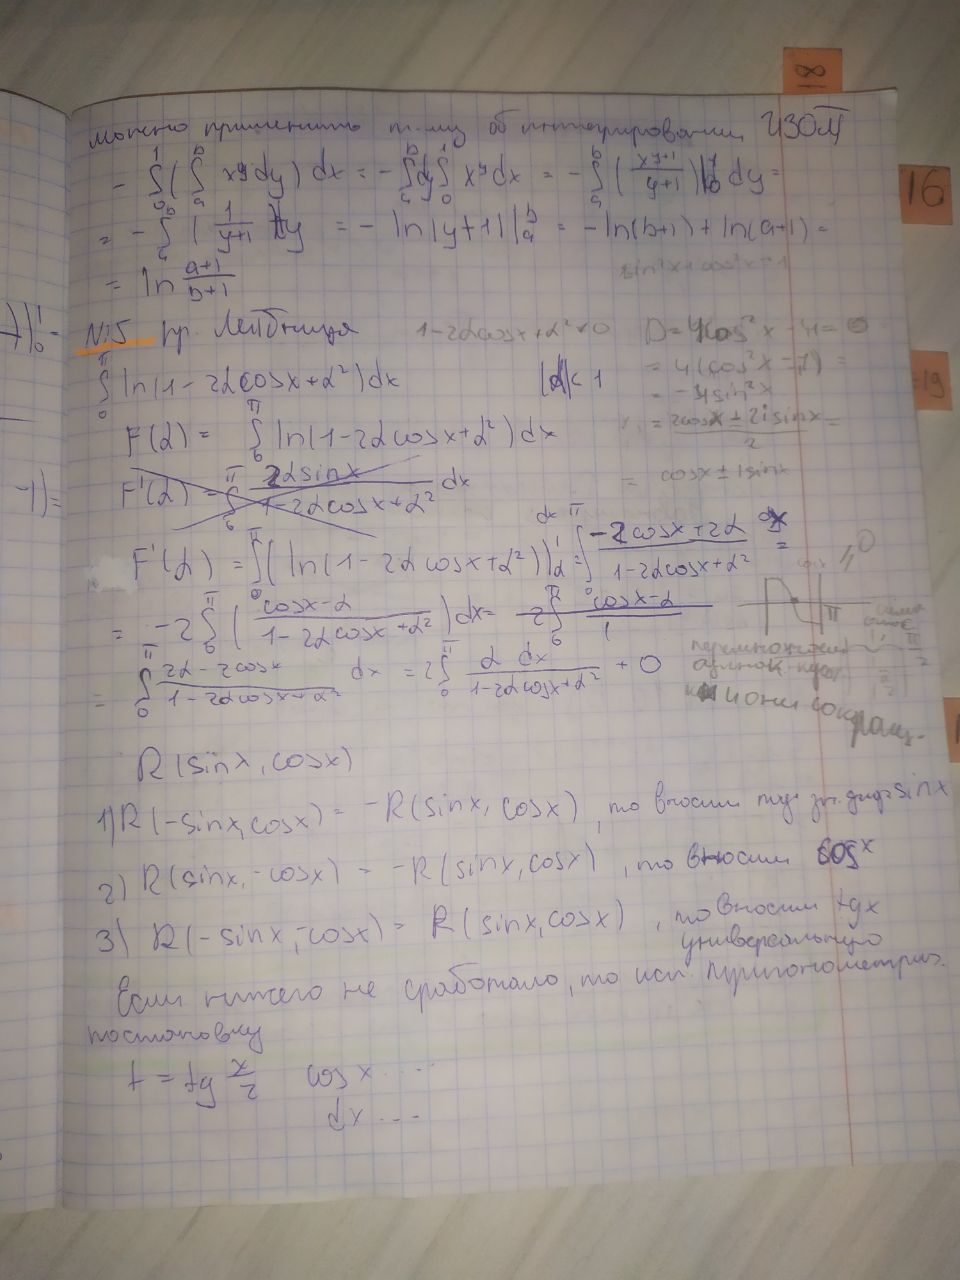 18
можно применить т-му об интегрировании ИЗОП
- ∫₀¹ (∫ₐᵇ x^y dy) dx = - ∫ₐᵇ dy ∫₀¹ x^y dx = - ∫ₐᵇ (x^(y+1)/(y+1)) |₀¹ dy =
16
= - ∫ₐᵇ (1/(y+1)) dy = - ln|y+1| |ₐᵇ = - ln(b+1) + ln(a+1) =
= ln (a+1)/(b+1)
sin²x + cos²x = 1
№15 пр. Лейбница
1-2αcosx+α² ≠ 0
D = 4cos²x - 4 =
= 4(cos²x - 1) =
= -4sin²x
∫₀^π ln(1-2αcosx+α²)dx |α|<1
19
= (2cosx ± 2isinx)/2 =
= cosx ± isinx
F(α) = ∫₀^π ln(1-2αcosx+α²)dx
F'(α) = ∫₀^π 2αsinx/(1-2αcosx+α²) dx
F'(α) = ∫₀^π (ln(1-2αcosx+α²))'_α dx = ∫₀^π (-2cosx+2α)/(1-2αcosx+α²) dx =
= -2 ∫₀^π ((cosx-α)/(1-2αcosx+α²)) dx = 2∫₀^π (cosx-α)/1
= ∫₀^π (2α-2cosx)/(1-2αcosx+α²) dx = 2∫₀^π α dx/(1-2αcosx+α²) + 0
и они сокращ.
R(sinx, cosx)
1) R(-sinx, cosx) = -R(sinx, cosx), то вносим под зн. диф. sinx
2) R(sinx, -cosx) = -R(sinx, cosx), то вносим cosx
3) R(-sinx, -cosx) = R(sinx, cosx), то вносим tgx
универсальную
Если ничего не сработало, то исп. тригонометрич.
постановку
t = tg x/2 cosx ....
dx ...